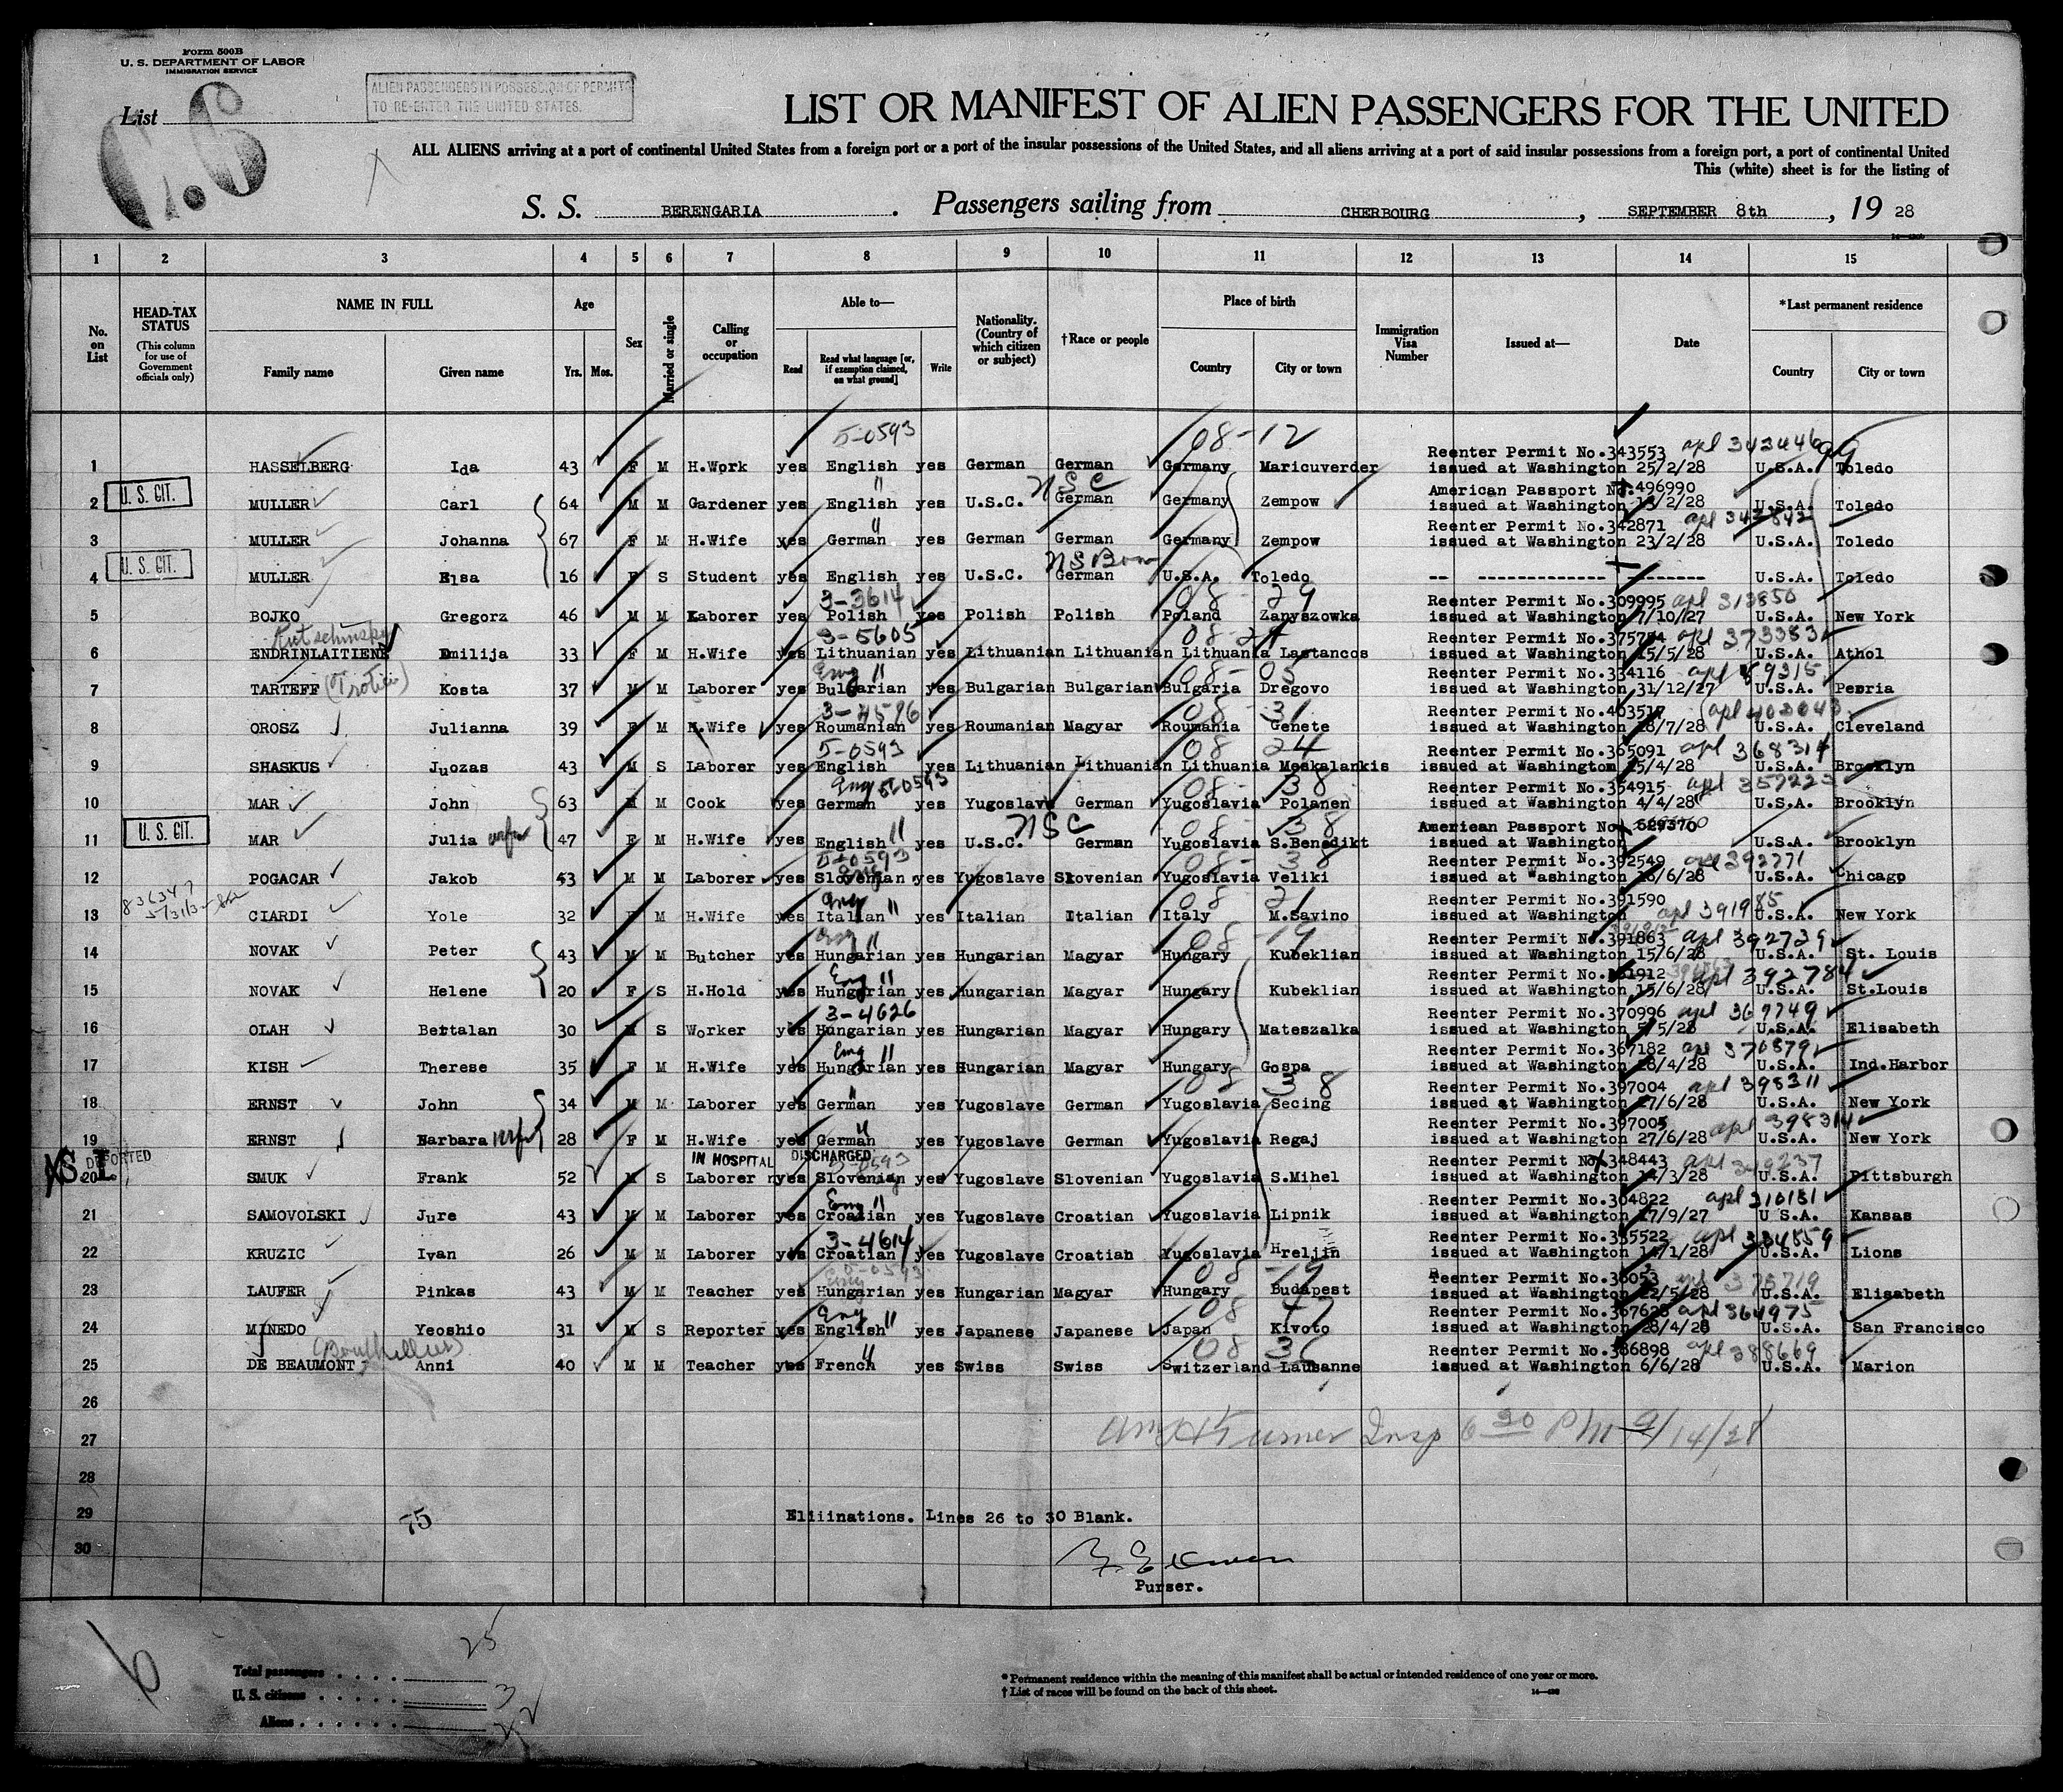 Form 500B
U. S. DEPARTMENT OF LABOR
IMMIGRATION SERVICE
ALIEN PASSENGERS IN POSSESSION OF PERMITS
TO RE-ENTER THE UNITED STATES.
List
LIST OR MANIFEST OF ALIEN PASSENGERS FOR THE UNITED
ALL ALIENS arriving at a port of continental United States from a foreign port or a port of the insular possessions of the United States, and all aliens arriving at a port of said insular possessions from a foreign port, a port of continental United
This (white) sheet is for the listing of
S. S. BERENGARIA. Passengers sailing from CHERBOURG, SEPTEMBER 8th, 19 28
1 2 3 4 5 6 7 8 9 10 11 12 13 14 15
No. on List
HEAD-TAX STATUS
(This column for use of Government officials only)
NAME IN FULL
Family name Given name
Age
Yrs. Mos.
Sex
Married or single
Calling or occupation
Able to—
Read Read what language [or, if exemption claimed, on what ground] Write
Nationality. (Country of which citizen or subject)
†Race or people
Place of birth
Country City or town
Immigration Visa Number
Issued at—
Date
*Last permanent residence
Country City or town
5-0593 08-12
Reenter Permit No.343553 apl 343446
1 HASSELBERG Ida 43 F M H.Work yes English yes German German Germany Maricuverder issued at Washington 25/2/28 U.S.A. Toledo
U. S. CIT. " NSC American Passport No.496990
2 MULLER Carl 64 M M Gardener yes English yes U.S.C. German Germany Zempow issued at Washington 13/2/28 U.S.A. Toledo
" Reenter Permit No.342871 apl 342842
3 MULLER Johanna 67 F M H.Wife yes German yes German German Germany Zempow issued at Washington 23/2/28 U.S.A. Toledo
U. S. CIT.
4 MULLER Elsa 16 F S Student yes English yes U.S.C. German U.S.A. Toledo -- ------------- -------- U.S.A. Toledo
3-3614 08-29 Reenter Permit No.309995 apl 313850
5 BOJKO Gregorz 46 M M Laborer yes Polish yes Polish Polish Poland Zanyszowka issued at Washington 7/10/27 U.S.A. New York
3-5605 Reenter Permit No.375754 apl 373383
6 ENDRINLAITIENE Emilija 33 F M H.Wife yes Lithuanian yes Lithuanian Lithuanian Lithuania Lastancos issued at Washington 15/5/28 U.S.A. Athol
Eng " 08-05 Reenter Permit No.334116
7 TARTEFF Kosta 37 M M Laborer yes Bulgarian yes Bulgarian Bulgarian Bulgaria Dregovo issued at Washington 31/12/27 U.S.A. Peoria
08 31 Reenter Permit No.403517
8 OROSZ Julianna 39 F M H.Wife yes Roumanian yes Roumanian Magyar Roumania Genete issued at Washington 18/7/28 U.S.A. Cleveland
5-0593 08 24 Reenter Permit No.365091 apl 368314
9 SHASKUS Juozas 43 M S Laborer yes English yes Lithuanian Lithuanian Lithuania Meskalankis issued at Washington 25/4/28 U.S.A. Brooklyn
Eng 5-0593 08-38 Reenter Permit No.354915 apl 357223
10 MAR John 63 M M Cook yes German yes Yugoslave German Yugoslavia Polanen issued at Washington 4/4/28 U.S.A. Brooklyn
U. S. CIT. " NSC 08-38 American Passport No. 629370
11 MAR Julia wife 47 F M H.Wife yes English yes U.S.C. German Yugoslavia S.Benedikt issued at Washington U.S.A. Brooklyn
5-0593 08-38 Reenter Permit No.392549 apl 392771
12 POGACAR Jakob 43 M M Laborer yes Slovenian yes Yugoslave Slovenian Yugoslavia Veliki issued at Washington 18/6/28 U.S.A. Chicago
Eng " 08 21 Reenter Permit No.391590 apl 391985
13 CIARDI Yole 32 F M H.Wife yes Italian yes Italian Italian Italy M.Savino issued at Washington U.S.A. New York
Eng " 08-19 Reenter Permit No.391863 apl 392739
14 NOVAK Peter 43 M M Butcher yes Hungarian yes Hungarian Magyar Hungary Kubeklian issued at Washington 15/6/28 U.S.A. St. Louis
Eng " Reenter Permit No.391912 apl 392784
15 NOVAK Helene 20 F S H.Hold yes Hungarian yes Hungarian Magyar Hungary Kubeklian issued at Washington 15/6/28 U.S.A. St.Louis
3-4626 Reenter Permit No.370996 apl 369749
16 OLAH Bertalan 30 M S Worker yes Hungarian yes Hungarian Magyar Hungary Mateszalka issued at Washington 5/5/28 U.S.A. Elisabeth
Eng " Reenter Permit No.367182 apl 370879
17 KISH Therese 35 F M H.Wife yes Hungarian yes Hungarian Magyar Hungary Gospa issued at Washington 28/4/28 U.S.A. Ind.Harbor
" 08 38 Reenter Permit No.397004 apl 398311
18 ERNST John 34 M M Laborer yes German yes Yugoslave German Yugoslavia Secing issued at Washington 27/6/28 U.S.A. New York
" Reenter Permit No.397005 apl 398314
19 ERNST Barbara wife 28 F M H.Wife yes German yes Yugoslave German Yugoslavia Regaj issued at Washington 27/6/28 U.S.A. New York
S.I. DEPORTED IN HOSPITAL DISCHARGED 5-0593 Reenter Permit No.348443 apl 349237
20 SMUK Frank 52 M S Laborer yes Slovenian yes Yugoslave Slovenian Yugoslavia S.Mihel issued at Washington 14/3/28 U.S.A. Pittsburgh
Eng " Reenter Permit No.304822 apl 310131
21 SAMOVOLSKI Jure 43 M M Laborer yes Croatian yes Yugoslave Croatian Yugoslavia Lipnik issued at Washington 17/9/27 U S.A. Kansas
3-4614 Reenter Permit No.335522 apl 334559
22 KRUZIC Ivan 26 M M Laborer yes Croatian yes Yugoslave Croatian Yugoslavia Hreljin issued at Washington 14/1/28 U.S.A. Lions
Eng 5-0593 08-19 Reenter Permit No.36053 apl 375719
23 LAUFER Pinkas 43 M M Teacher yes Hungarian yes Hungarian Magyar Hungary Budapest issued at Washington 22/5/28 U.S.A. Elisabeth
Eng " 08 Reenter Permit No.367628 apl 364975
24 MINEDO Yeoshio 31 M S Reporter yes English yes Japanese Japanese Japan Kivoto issued at Washington 28/4/28 U.S.A. San Francisco
" 08 36 Reenter Permit No.386898 apl 388669
25 DE BEAUMONT Anni 40 M M Teacher yes French yes Swiss Swiss Switzerland Lausanne issued at Washington 6/6/28 U.S.A. Marion
26
27 Insp 6 30 PM 9/14/28
28
29 75 Eliiinations. Lines 26 to 30 Blank.
30
Purser.
6
Total passengers . . . . 25
U. S. citizens . . . . . 3
Aliens . . . . . . 22
* Permanent residence within the meaning of this manifest shall be actual or intended residence of one year or more.
† List of races will be found on the back of this sheet.